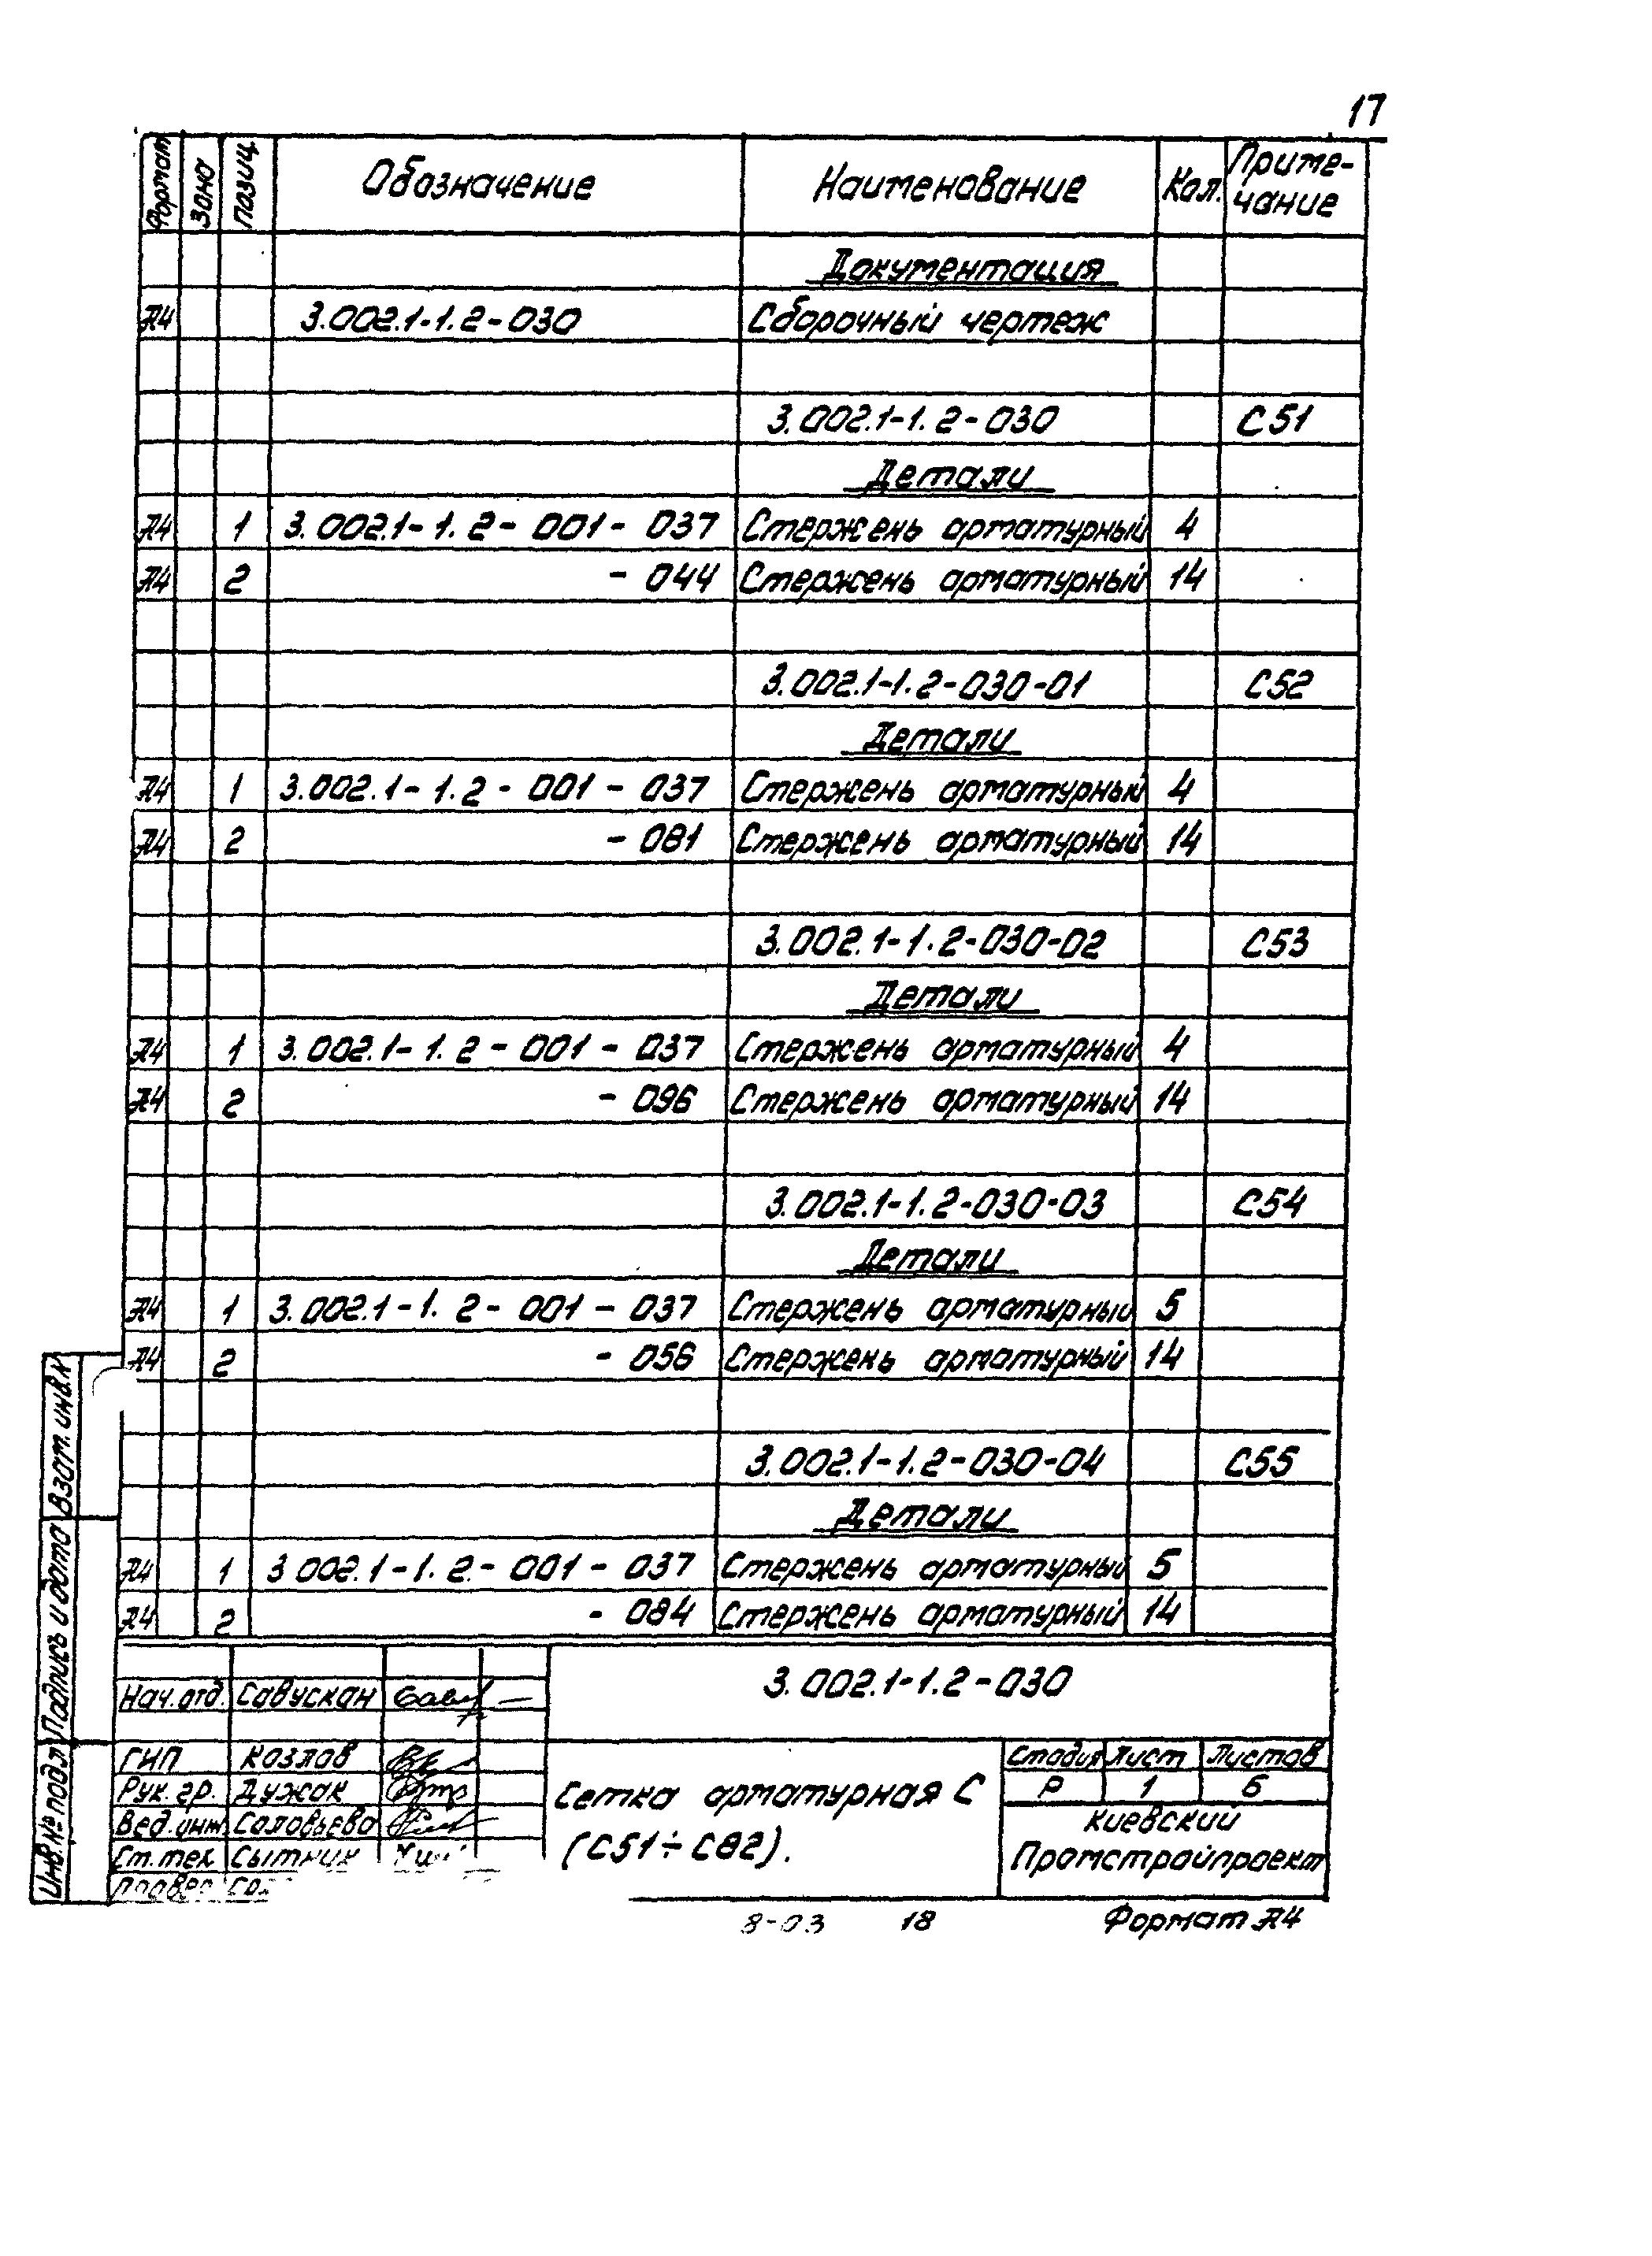 17
Формат Зона Позиц. Обозначение Наименование Кол. Приме-
чание
Документация
А4 3.002.1-1.2-030 Сборочный чертеж
3.002.1-1.2-030 С51
Детали
А4 1 3.002.1-1.2-001-037 Стержень арматурный 4
А4 2 -044 Стержень арматурный 14
3.002.1-1.2-030-01 С52
Детали
А4 1 3.002.1-1.2-001-037 Стержень арматурный 4
А4 2 -081 Стержень арматурный 14
3.002.1-1.2-030-02 С53
Детали
А4 1 3.002.1-1.2-001-037 Стержень арматурный 4
А4 2 -096 Стержень арматурный 14
3.002.1-1.2-030-03 С54
Детали
А4 1 3.002.1-1.2-001-037 Стержень арматурный 5
А4 2 -056 Стержень арматурный 14
3.002.1-1.2-030-04 С55
Детали
А4 1 3 002.1-1.2.-001-037 Стержень арматурный 5
А4 2 -084 Стержень арматурный 14
Взам. инв. №
Подпись и дата
Инв. № подл
3.002.1-1.2-030
Нач. отд. Савускан
ГИП Козлов
Рук. гр. Дужак
Вед. инж. Соловьева
Ст. тех Сытник
Сетка арматурная С
(С51÷С82).
Стадия Лист Листов
Р 1 6
Киевский
Промстройпроект
8-03 18 Формат А4